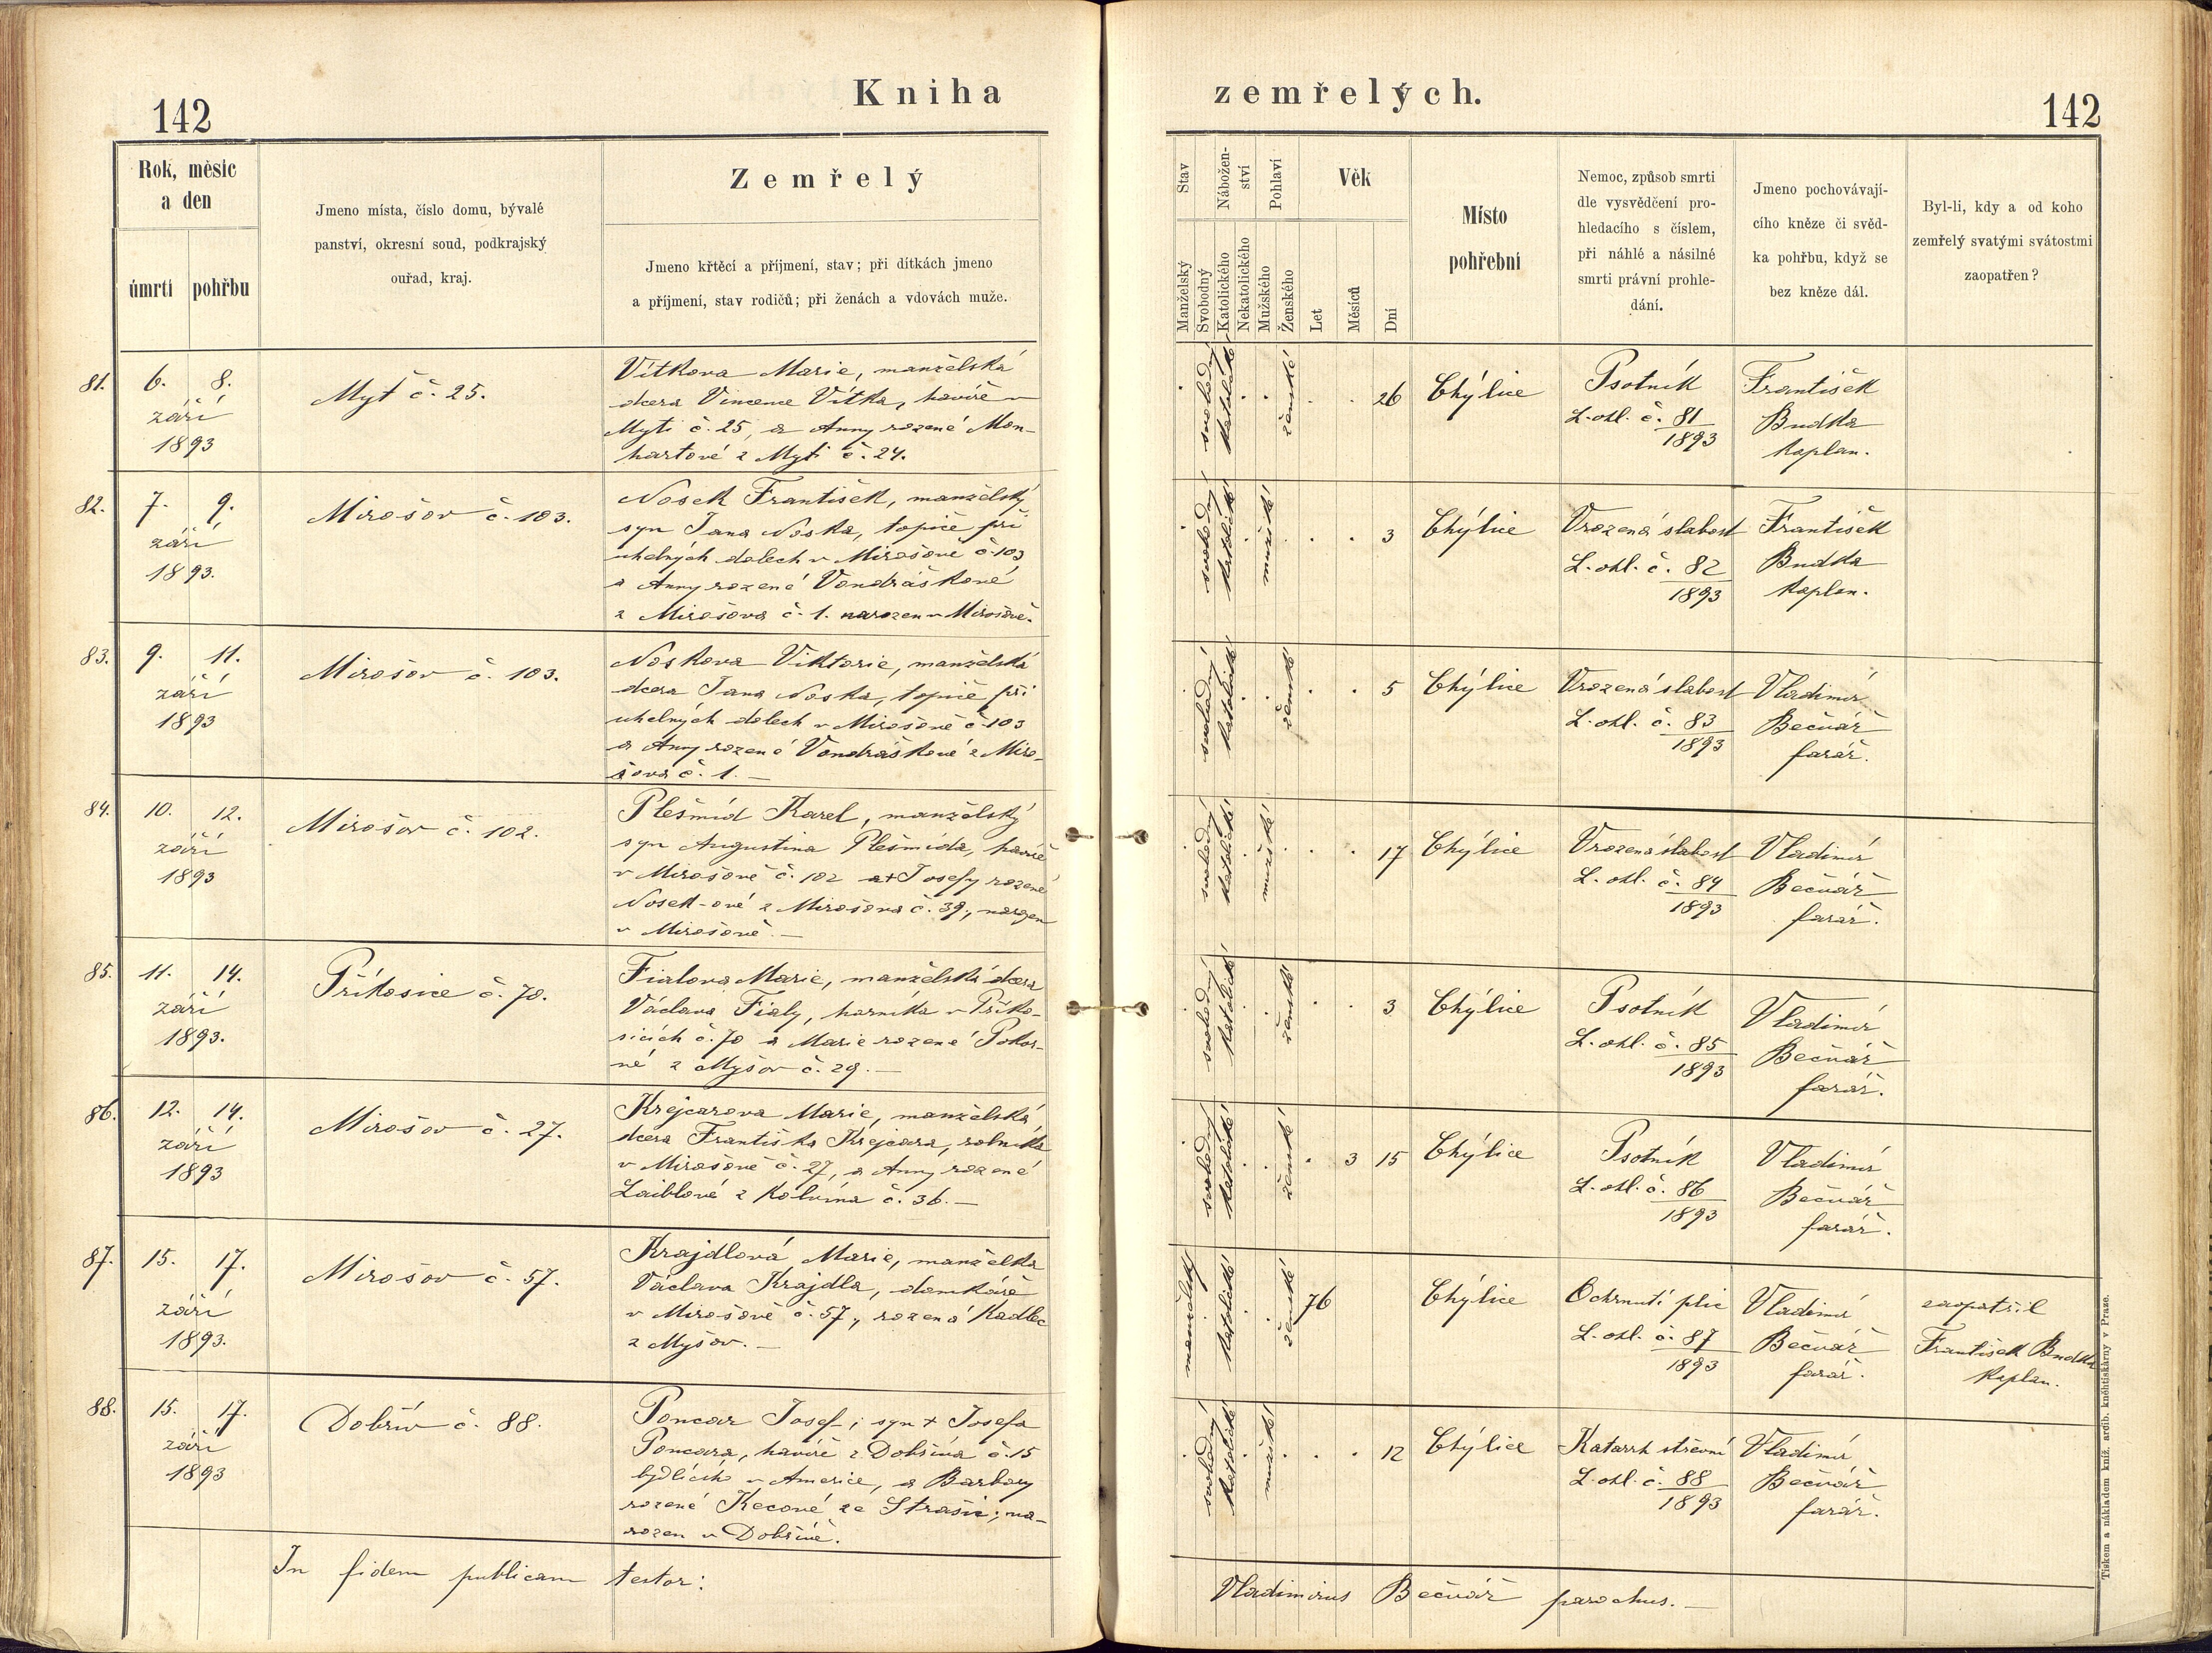 142
Kniha
zemřelých.
142
Rok, měsíc
a den
úmrtí
pohřbu
Jmeno místa, číslo domu, bývalé
panství, okresní soud, podkrajský
ouřad, kraj.
Zemřelý
Jmeno křtěcí a příjmení, stav; při dítkách jmeno
a příjmení, stav rodičů; při ženách a vdovách muže.
Stav
Manželský
Svobodný
Nábožen-
ství
Katolického
Nekatolického
Pohlaví
Mužského
Ženského
Věk
Let
Měsíců
Dní
Místo
pohřební
Nemoc, způsob smrti
dle vysvědčení pro-
hledacího s číslem,
při náhlé a násilné
smrti právní prohle-
dání.
Jmeno pochovávají-
cího kněze či svěd-
ka pohřbu, když se
bez kněze dál.
Byl-li, kdy a od koho
zemřelý svatými svátostmi
zaopatřen?
81.
6. 8.
září
1893
Myť č. 25.
Vítkova Marie, manželská
dcera Vincence Vítka, havíře v
Myti č. 25, a Anny rozené Mon-
hartové z Myti č. 24.
svobodný
katolické
ženské
26
Chýlice
Psotník
L. ohl. č. 81
1893
František
Budka
kaplan.
82.
7. 9.
září
1893.
Mirošov č. 103.
Nosek František, manželský
syn Jana Noska, topiče při
uhelných dolech v Mirošově č. 103
a Anny rozené Vondráškové
z Mirošova č. 1. narozen v Mirošově.
svobodný
katolické
mužské
3
Chýlice
Vrozená slabost
L. ohl. č. 82
1893
František
Budka
kaplan.
83.
9. 11.
září
1893
Mirošov č. 103.
Noskova Viktorie, manželská
dcera Jana Noska, topiče při
uhelných dolech v Mirošově č. 103
a Anny rozené Vondráškové z Miro-
šova č. 1. —
svobodný
katolické
ženské
5
Chýlice
Vrozená slabost
L. ohl. č. 83
1893
Vladimír
Bečvář
farář.
84.
10. 12.
září
1893
Mirošov č. 102.
Plešmíd Karel, manželský
syn Augustina Plešmída, havíře
v Mirošově č. 102 a + Josefy rozené
Nosek-ové z Mirošova č. 39, narozen
v Mirošově. —
svobodný
katolické
mužské
17
Chýlice
Vrozená slabost
L. ohl. č. 84
1893
Vladimír
Bečvář
farář.
85.
11. 14.
září
1893.
Příkosice č. 70.
Fialova Marie, manželská dcera
Václava Fialy, horníka v Příko-
sicích č. 70 a Marie rozené Pokor-
né z Myšov č. 29. —
svobodný
katolické
ženské
3
Chýlice
Psotník
L. ohl. č. 85
1893
Vladimír
Bečvář
farář.
86.
12. 14.
září
1893
Mirošov č. 27.
Krejcarova Marie, manželská
dcera Františka Krejcara, rolníka
v Mirošově č. 27, a Anny rozené
Laiblové z Kolvína č. 36. —
svobodný
katolické
ženské
3 15
Chýlice
Psotník
L. ohl. č. 86
1893
Vladimír
Bečvář
farář.
87.
15. 17.
září
1893.
Mirošov č. 57.
Krajdlová Marie, manželka
Václava Krajdla, domkáře
v Mirošově č. 57, rozená Kadlec
z Myšov. —
manželský
katolické
ženské
76
Chýlice
Ochrnutí plic
L. ohl. č. 87
1893
Vladimír
Bečvář
farář.
zaopatřil
František Budka
kaplan.
88.
15. 17.
září
1893
Dobřív č. 88.
Poncar Josef, syn + Josefa
Poncara, havíře z Dobříva č. 15
bydlícího v Americe, a Barbory
rozené Kecové ze Strašic; na-
rozen v Dobřívě.
svobodný
katolické
mužské
12
Chýlice
Katarrh střevní
L. ohl. č. 88
1893
Vladimír
Bečvář
farář.
In fidem publicam testor:
Vladimirus Bečvář parochus. —
Tiskem a nákladem kníž. arcib. knihtiskárny v Praze.